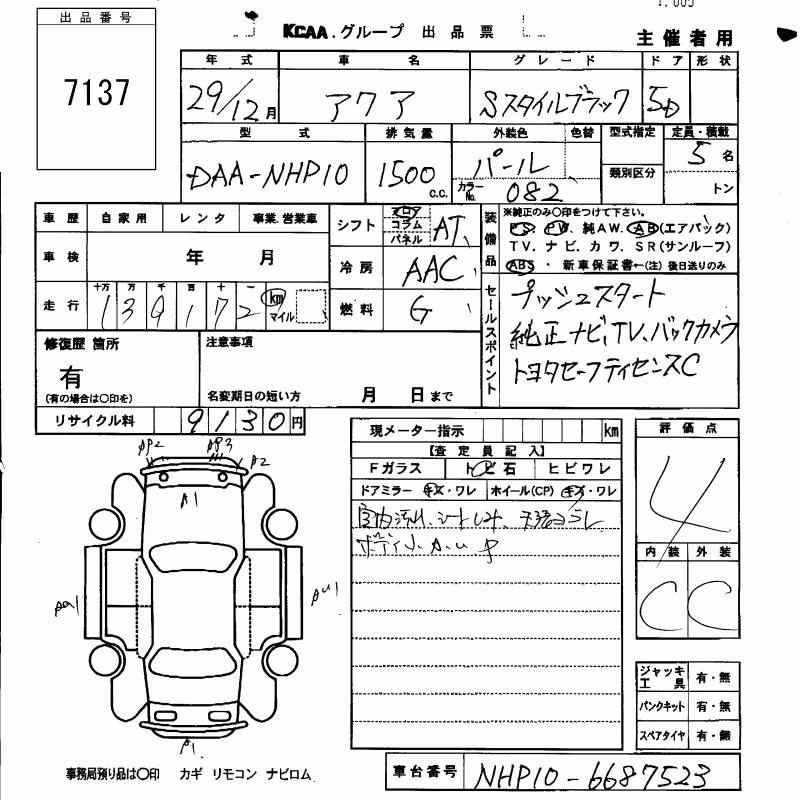 出品番号
7137
KCAA.グループ 出品票
主催者用
年式 車名 グレード ドア 形状
29/12月 アクア Sスタイルブラック 5D
型式 排気量 外装色 色替 型式指定 定員・積載
DAA-NHP10 1500 c.c. パール 5名
カラーNo. 082 類別区分 トン
車歴 自家用 レンタ 事業.営業車
車検 年 月
走行 十万 万 千 百 十 一
139172 km マイル
シフト フロア コラム パネル AT
冷房 AAC
燃料 G
装備品
※純正のみ○印をつけて下さい。
PS. PW. 純AW. AB(エアバック)
TV. ナビ. カワ. SR(サンルーフ)
ABS. 新車保証書←(注) 後日送りのみ
セールスポイント
プッシュスタート
純正ナビ、TV、バックカメラ
トヨタセーフティセンスC
修復歴 箇所
有
(有の場合は○印を)
注意事項
名変期日の短い方 月 日まで
リサイクル料 9130円
現メーター指示 km
【査定員記入】
Fガラス トビ石 ヒビワレ
ドアミラー キズ・ワレ ホイール(CP) キズ・ワレ
ボディ小A.U
評価点
4
内装 外装
C C
AP2 AP3 A2
A1
A1
ジャッキ工具 有・無
パンクキット 有・無
スペアタイヤ 有・無
事務局預り品は○印 カギ リモコン ナビロム
車台番号 NHP10-6687523